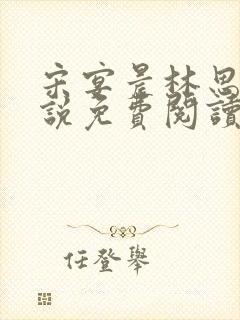 宋宴景林思
說免費閱讀
任登舉